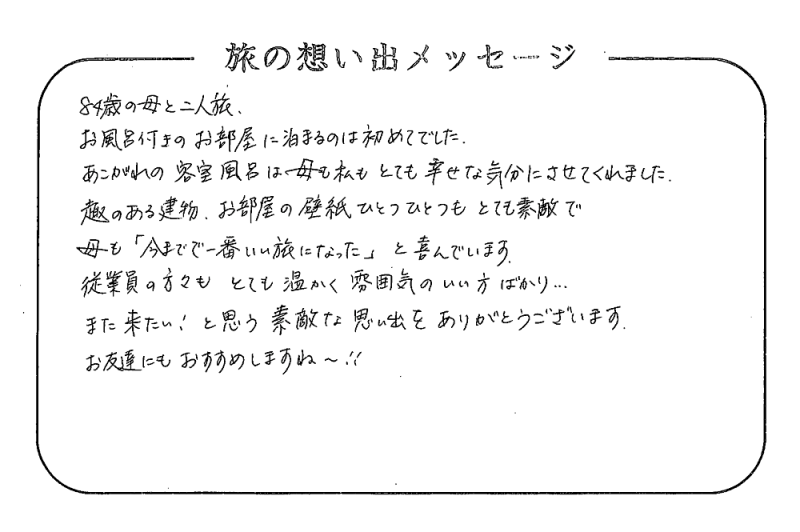 旅の想い出メッセージ
84歳の母と二人旅、
お風呂付きのお部屋に泊まるのは初めてでした.
あこがれの客室風呂は母も私もとても幸せな気分にさせてくれました.
趣のある建物、お部屋の壁紙ひとつひとつもとても素敵で
母も「今までで一番いい旅になった」と喜んでいます.
従業員の方々もとても温かく雰囲気のいい方ばかり…
また来たい！と思う素敵な思い出をありがとうございます.
お友達にもおすすめしますね〜!!